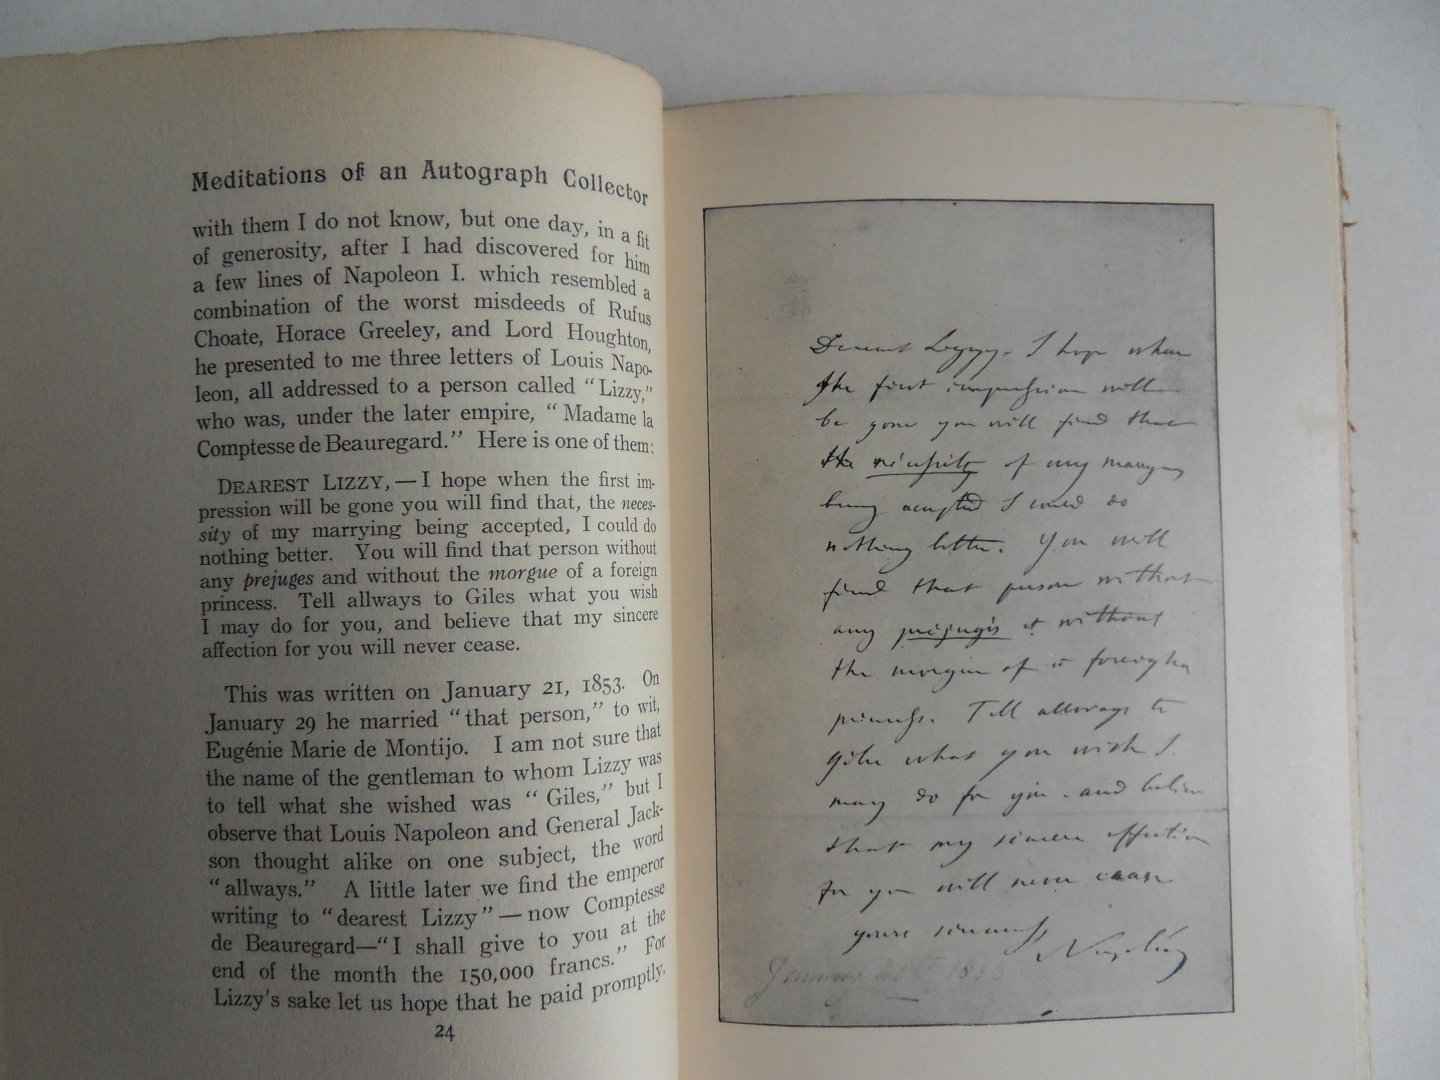 Meditations of an Autograph Collector
with them I do not know, but one day, in a fit
of generosity, after I had discovered for him
a few lines of Napoleon I. which resembled a
combination of the worst misdeeds of Rufus
Choate, Horace Greeley, and Lord Houghton,
he presented to me three letters of Louis Napo-
leon, all addressed to a person called “Lizzy,”
who was, under the later empire, “Madame la
Comptesse de Beauregard.” Here is one of them:
DEAREST LIZZY,—I hope when the first im-
pression will be gone you will find that, the neces-
sity of my marrying being accepted, I could do
nothing better. You will find that person without
any prejuges and without the morgue of a foreign
princess. Tell allways to Giles what you wish
I may do for you, and believe that my sincere
affection for you will never cease.
This was written on January 21, 1853. On
January 29 he married “that person,” to wit,
Eugénie Marie de Montijo. I am not sure that
the name of the gentleman to whom Lizzy was
to tell what she wished was “Giles,” but I
observe that Louis Napoleon and General Jack-
son thought alike on one subject, the word
“allways.” A little later we find the emperor
writing to “dearest Lizzy”—now Comptesse
de Beauregard—“I shall give to you at the
end of the month the 150,000 francs.” For
Lizzy’s sake let us hope that he paid promptly.
24
Dearest Lizzy. I hope when
the first impression will
be gone you will find that
the necessity of my marrying
being accepted I could do
nothing better. You will
find that person without
any préjugés et without
the morgue of a foreign
princess. Tell allways to
Giles what you wish I
may do for you and believe
that my sincere affection
for you will never cease
yours sincerely
January 1853